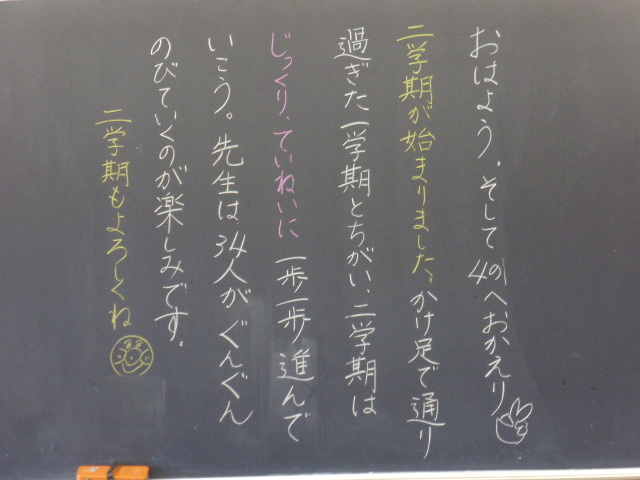 おはよう。そして4のへおかえり
二学期が始まりました。かけ足で通り
過ぎた一学期とちがい、二学期は
じっくり、ていねいに一歩一歩、進んで
いこう。先生は34人がぐんぐん
のびていくのが楽しみです。
二学期もよろしくね